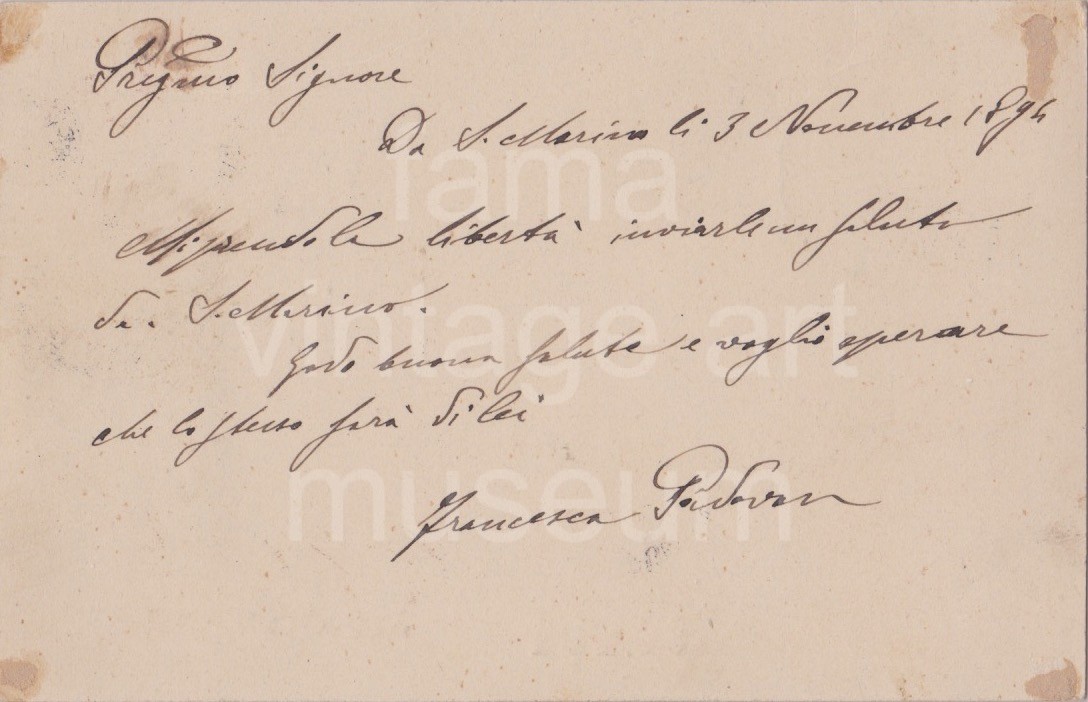 Pregmo Signore
Da S. Marino li 3 Novembre 1894
Mi prendo la libertà inviarle un saluto
da. S. Marino.
Godo buona salute e voglio sperare
che lo stesso sarà di lei
Francesca Padovan
fama
vintage art
museum